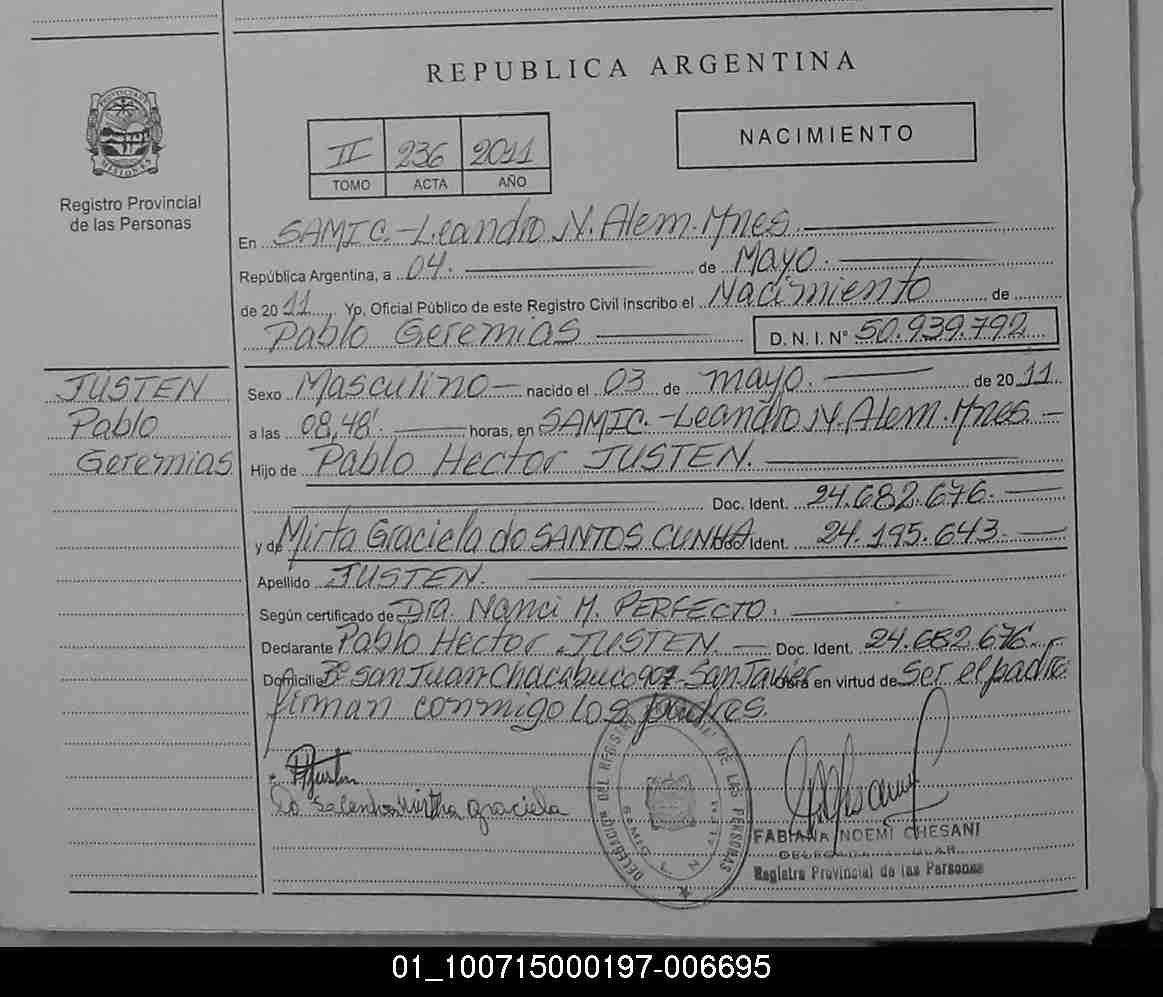 REPUBLICA ARGENTINA
PROVINCIA DE
MISIONES
Registro Provincial
de las Personas
II 236 2011
TOMO ACTA AÑO
NACIMIENTO
En SAMIC.-Leandro N. Alem.Mnes
República Argentina, a 04. de Mayo.
de 2011 Yo, Oficial Público de este Registro Civil inscribo el Nacimiento de
Pablo Geremias D. N. I. Nº 50.939.792
JUSTEN
Pablo
Geremias
Sexo Masculino nacido el 03 de mayo. de 2011
a las 08,48' horas, en SAMIC.-Leandro N. Alem.Mnes.
Hijo de Pablo Hector JUSTEN.
Doc. Ident. 24.682.676.
y de Mirta Graciela do SANTOS CUNHA Doc. Ident. 24.195.643.
Apellido JUSTEN.
Según certificado de Dra. Nanci M. PERFECTO.
Declarante Pablo Hector JUSTEN Doc. Ident. 24.682.676.
Domicilio Bº San Juan Chacabuco 907-San Javier Obra en virtud de Ser el padre
firman conmigo los padres.
PJusten
Mirtha Graciela
DELEGACION DEL REGISTRO DE LAS PERSONAS
FABIANA NOEMI CHESANI
Registro Provincial de las Personas
01_100715000197-006695